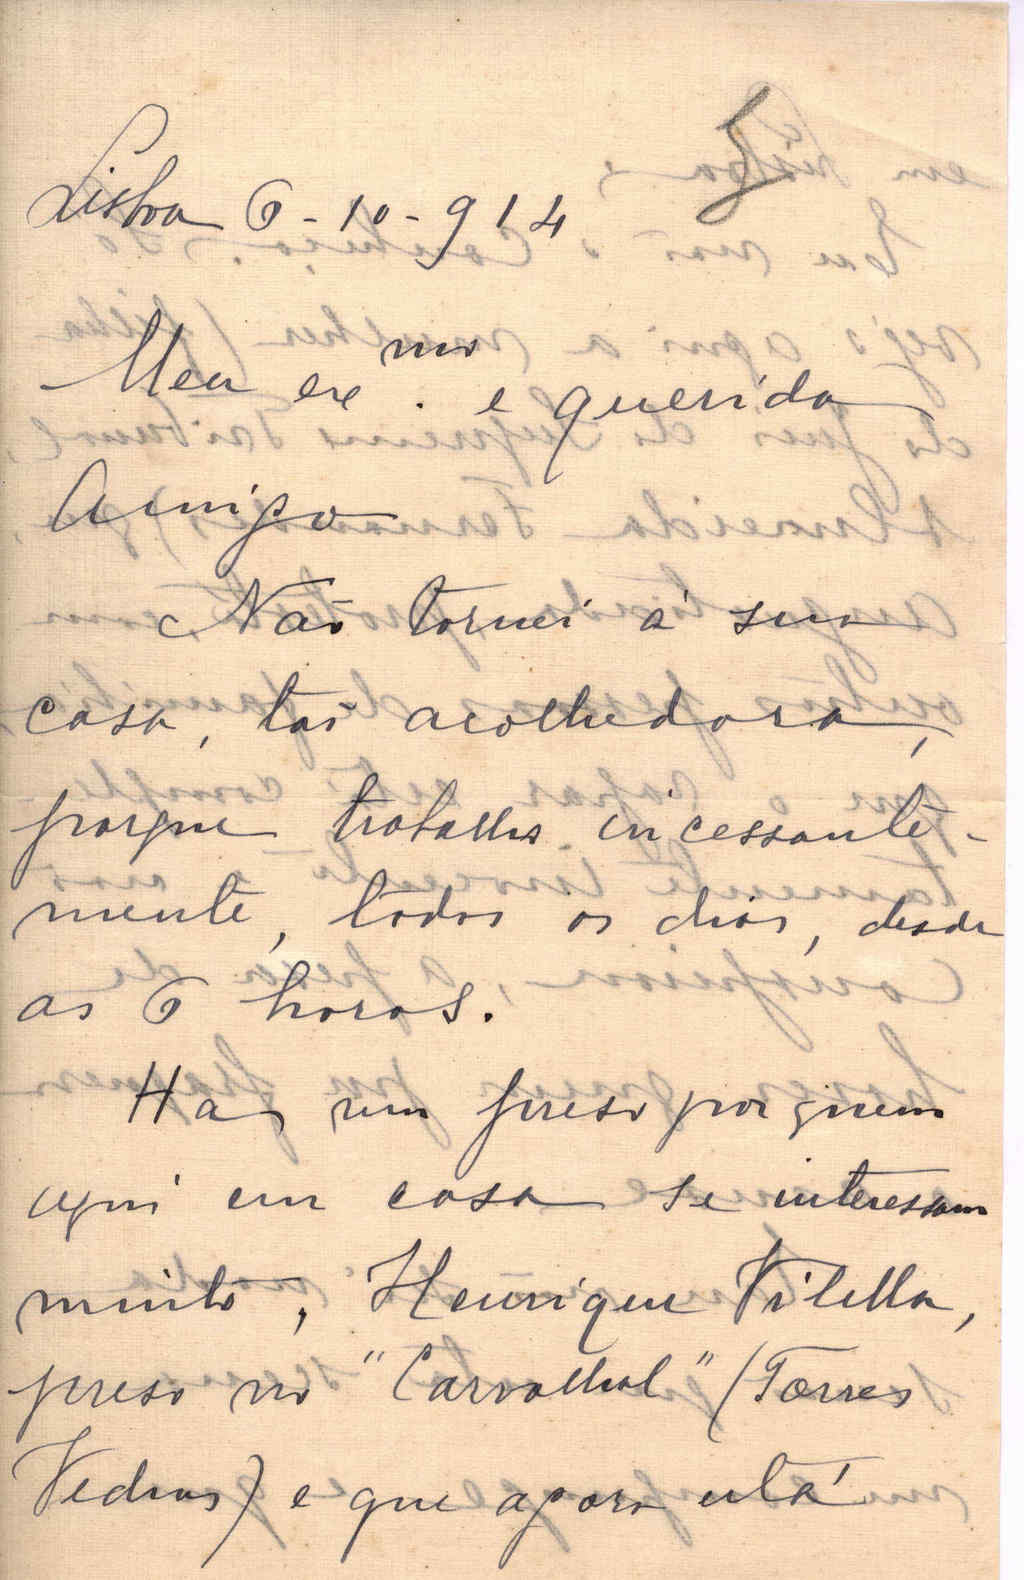 Lisboa 6-10-914
Meu exmo. e querido
Amigo
Não tornei á sua
casa, tão acolhedora,
porque trabalho incessante-
mente, todos os dias, desde
as 6 horas.
Ha um preso por quem
aqui em casa se interessam
muito, Henrique Vilella,
preso no "Carvalhal" (Torres
Vedras) e que agora está